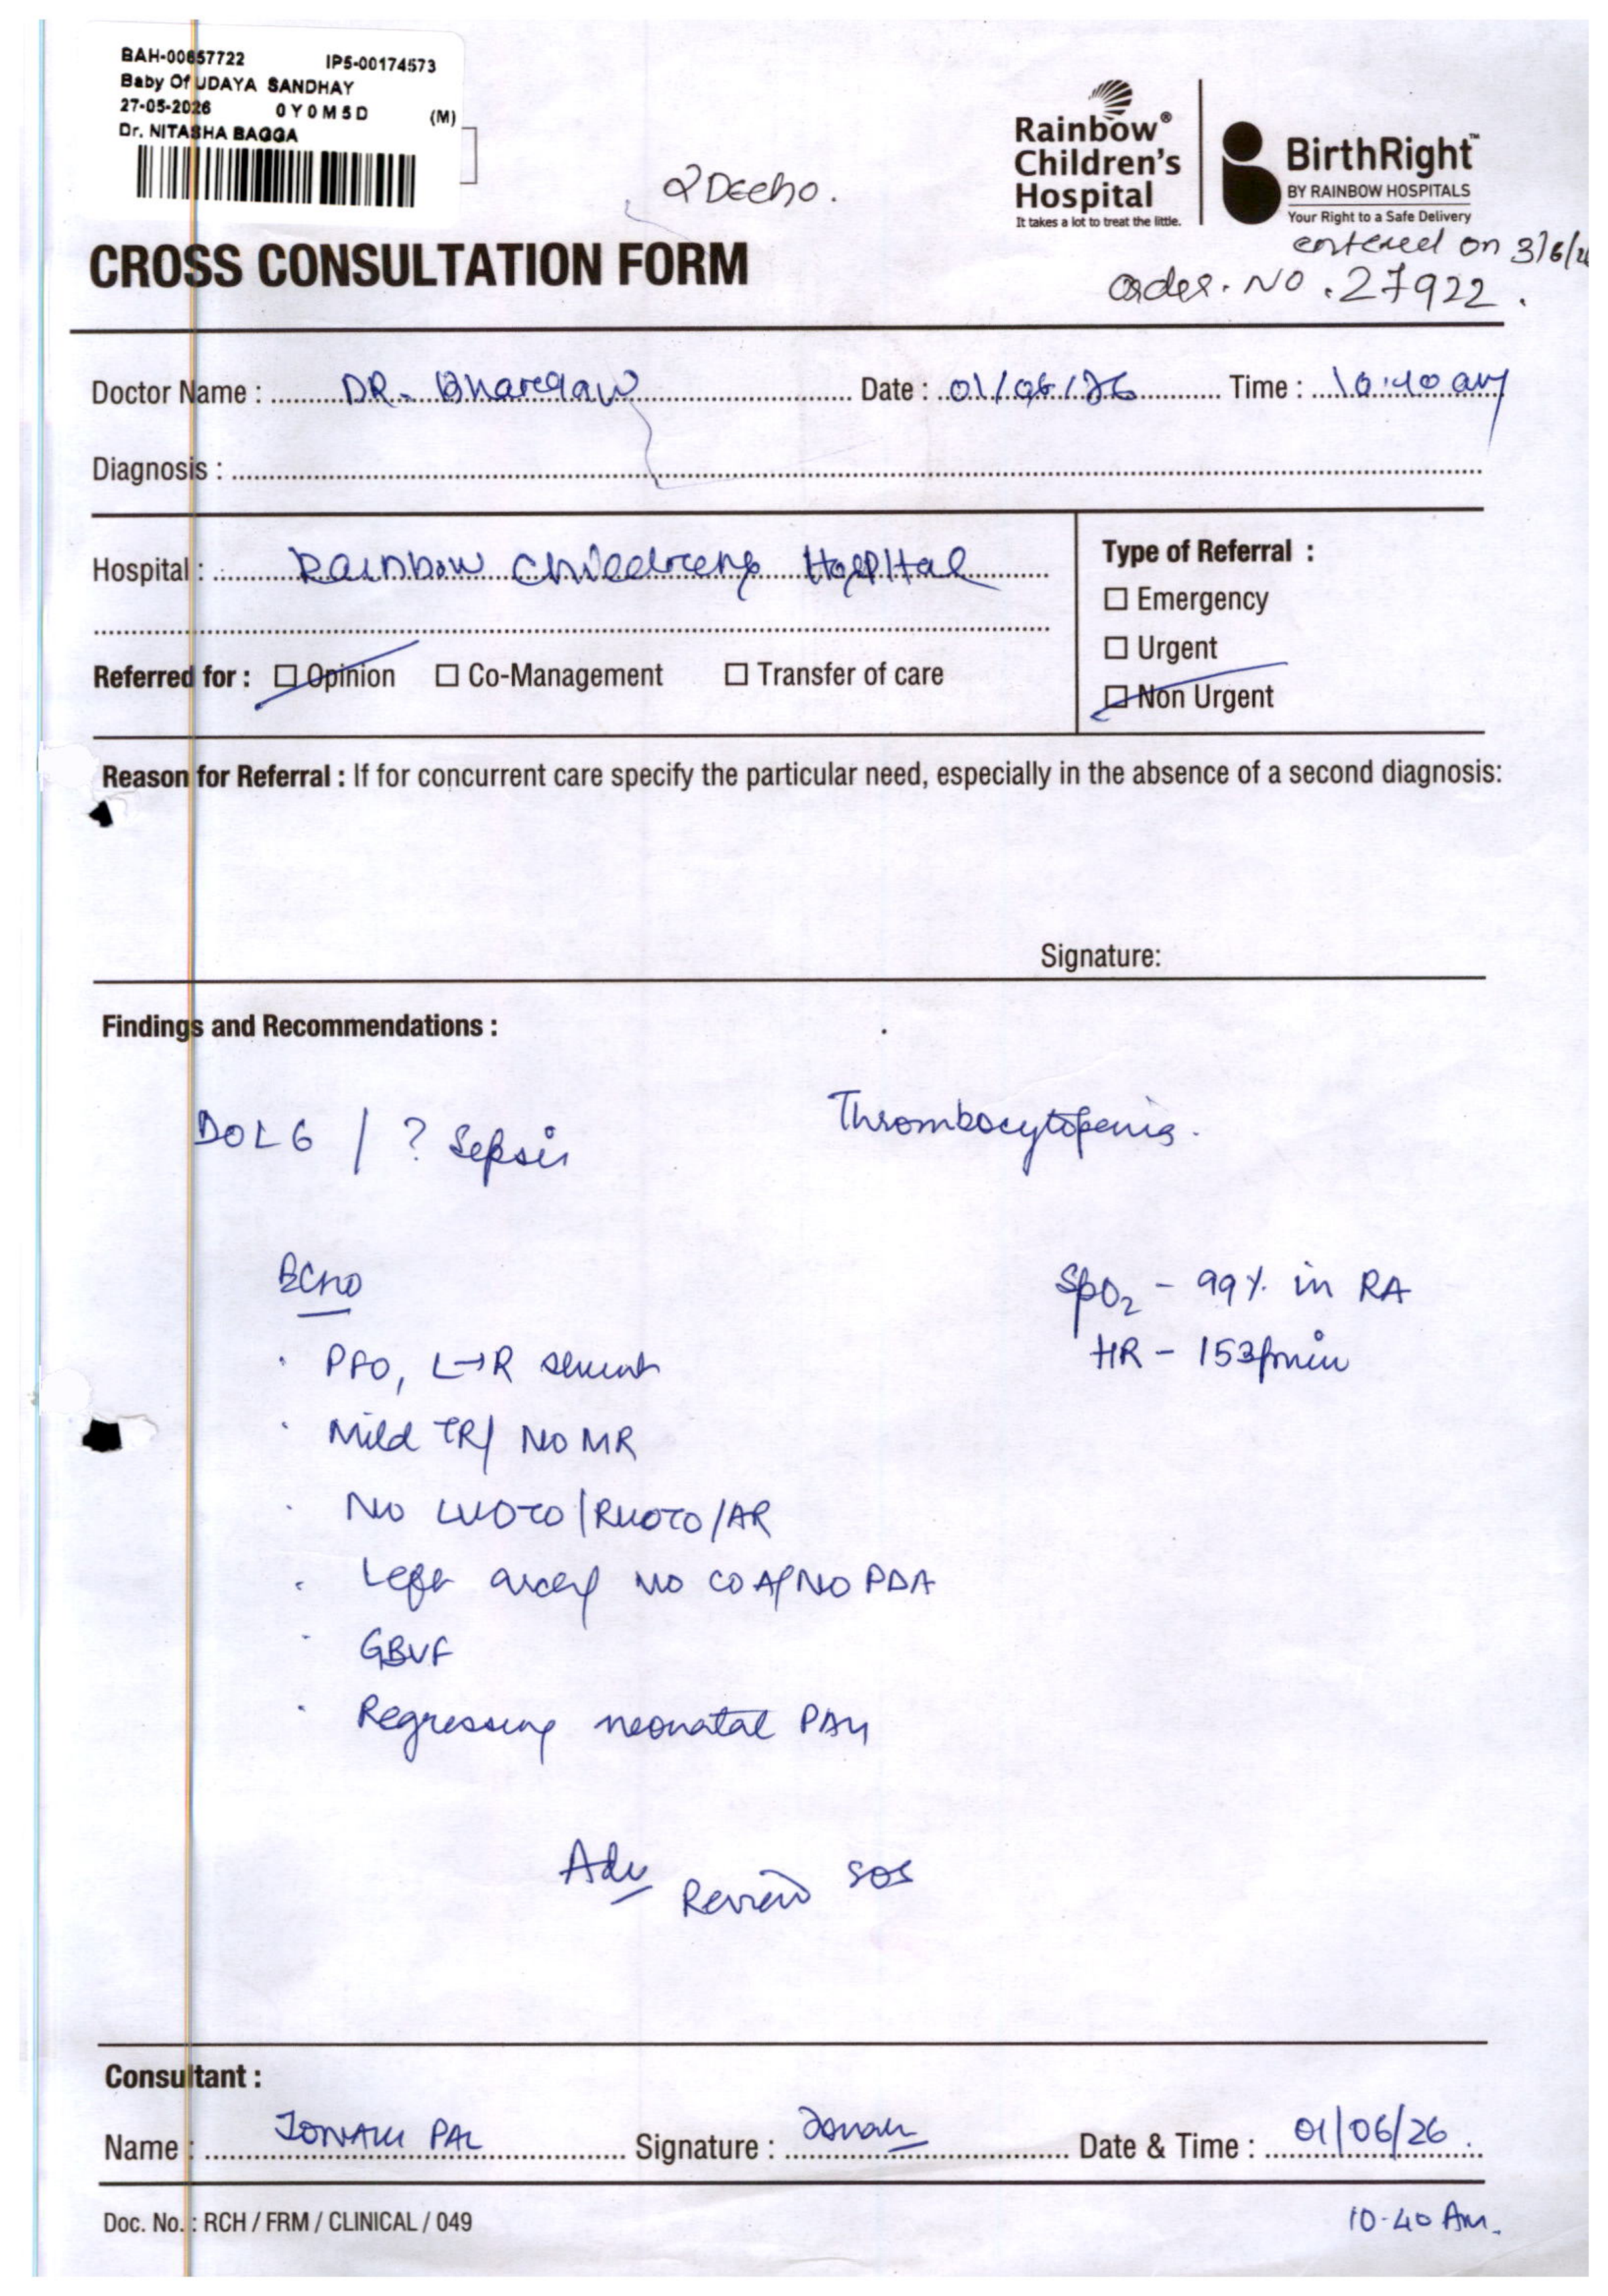 BAH-00657722 IP5-00174573
Baby Of UDAYA SANDHAY
27-05-2026 0Y0M5D (M)
Dr. NITASHA BAGGA
2Decho.
Rainbow® Children's Hospital
It takes a lot to treat the little.
BirthRight™
BY RAINBOW HOSPITALS
Your Right to a Safe Delivery
entered on 3/6/26
order. No. 27922.
CROSS CONSULTATION FORM
Doctor Name : DR. Bhargav Date : 01/06/26 Time : 10:40 am
Diagnosis :
Hospital : Rainbow Childrens Hospital
Type of Referral :
☐ Emergency
☐ Urgent
☐ Non Urgent
Referred for : ☐ Opinion ☐ Co-Management ☐ Transfer of care
Reason for Referral : If for concurrent care specify the particular need, especially in the absence of a second diagnosis:
Signature:
Findings and Recommendations :
DOL 6 / ? Sepsis Thrombocytopenia.
Echo
SpO2 - 99% in RA
HR - 153/min
· PFO, L→R shunt
· Mild TR/ NO MR
· No LVOTO/RVOTO/AR
· Left arch/ NO COA/NO PDA
· GBVF
· Regressing neonatal PAH
Adv Review SOS
Consultant :
Name : PAL Signature : Date & Time : 01/06/26.
10-40 Am.
Doc. No. : RCH / FRM / CLINICAL / 049